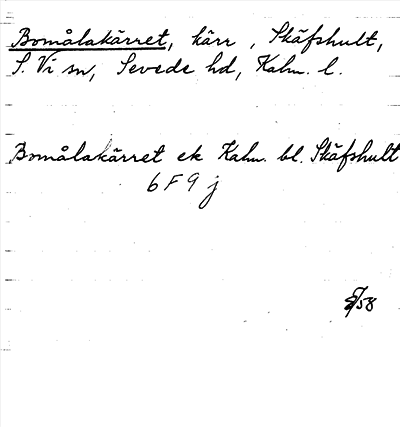 Bomålakärret, kärr, Skäfshult,
S. Vi sn, Sevede hd, Kalm. l.
Bomålakärret ek Kalm. bl. Skäfshult
6 F 9 j
/58